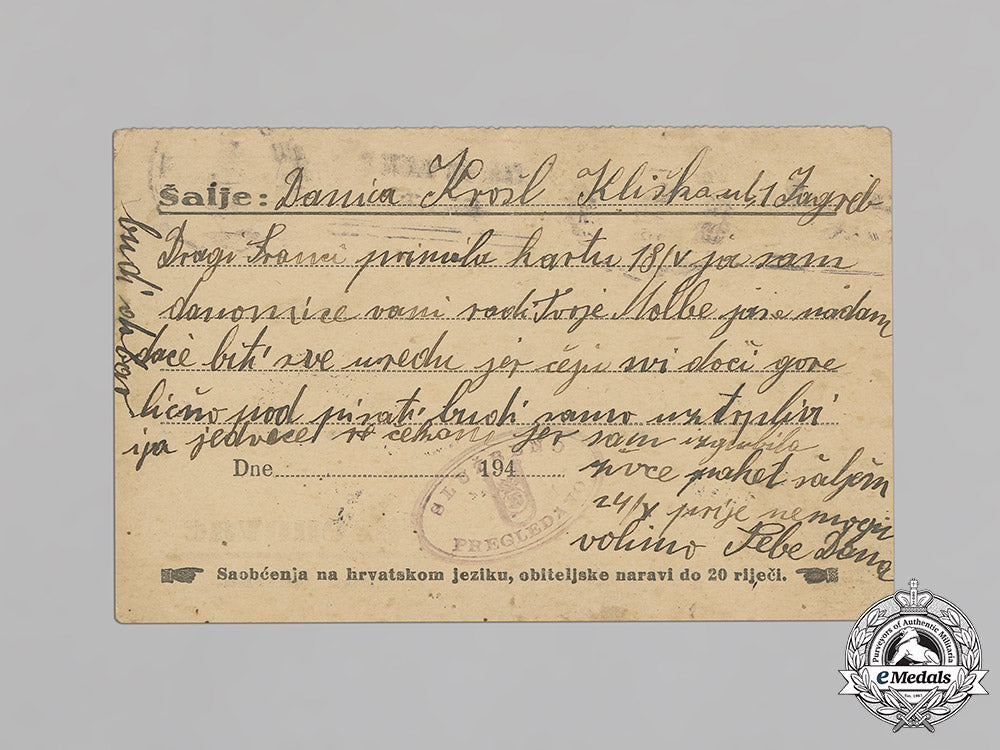 Šalje: Danica Krošl Kliška ul. 1 Zagreb
Dragi Franci primila kartu 18/X ja sam
danomice vani radi Tvoje Molbe ja se nadam
da će biti sve uredu jer ćeju svi doći gore
lično pod pisati budi samo uztrpljivi
ija jedva će čekam jer sam izgubila
živce paket šaljem
24/X prije nemogu
volimo Tebe Dana
budi
Dne 194
SLUŽBENO
PREGLEDANO
Saobćenja na hrvatskom jeziku, obiteljske naravi do 20 riječi.
Purveyors of Authentic Militaria
eMedals